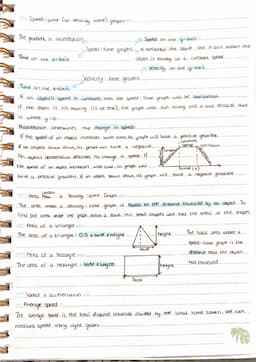 Speed-time (or velocity time) graphs
The gradient is acceleration
Speed on the y-axis
Speed-time graphs
a horizontal line above the x-axis means the
Time on the x-axis
object is moving at a constant speed
Velocity on the y-axis
Velocity-time graphs
Time on the x-axis
If an object's speed is constant, then the speed-time graph will be horizontal
If the object is not moving (its at rest), the graph will run along the x-axis because that
is where y=0.
Acceleration determines the change in speed.
If the speed of an object increases with time, its graph will have a positive gradient.
If an object slows down, its graph will have a negative
An object's acceleration describes its change in speed. If
the speed of an object increases with time, its graph will
have a positive gradient. If an object slows down, its graph will have a negative gradient
time (s)
Area under a Velocity-time Graph
The area under a velocity-time graph is equal to the distance travelled by an object. To
find the area under the graph, break it down into small shapes and add the areas of the shapes
Area of a triangle
The area of a triangle: 0.5 x base x height
height
base
The total area under a
speed-time graph is the
distance that the object
has travelled
Area of a rectangle
The area of a rectangle: base x height
height
base
Speed & acceleration
Average speed
The average speed is the total distance travelled divided by the total time taken. We can
measure speed using light gates.